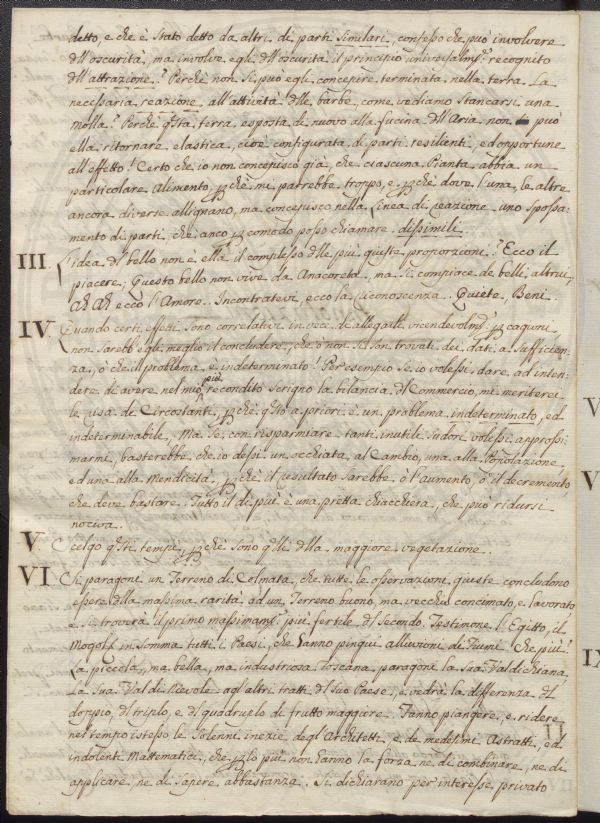 detto, e che è stato detto da altri di parti similari, confesso che può involvere
dll'oscurità, ma involve egli dll'oscurità il principio universalmte: recognito
dll'attrazione? Perchè non si può egli concepire terminata nella terra La
necessaria reazione all'attività dlle barbe, come vediamo stancarsi una
molla? Perchè qsta terra esposta di nuovo alla fucina dll'Aria non può
ella ritornare elastica, cioè configurata di parti resilienti, ed opportune
all'effetto? Certo che io non concepisco già, che ciascuna Pianta abbia un
particolare Alimento, pchè mi parrebbe troppo, e pchè dove l'una, le altre
ancora diverse allignano, ma concepisco nella Linea di reazione uno spossa-
mento di parti, che anco p comodo posso chiamare dissimili.
III. L'idea dl bello non è ella il complesso dlle più giuste proporzioni? Ecco il
piacere; Questo bello non vive da Anacoreta, ma si compiace de belli altrui,
Ah Ah ecco l'Amore. Incontratevi, ecco la riconoscenza. Quiete, Beni.
IV Quando certi effetti sono correlativi in vece di allegarli vicendevolmte: p cagioni
non sarebb'egli meglio il concludere, che o non si son trovati dei dati a sufficien-
za, ò che il problema è indeterminato? Per esempio se io volessi dare ad inten-
dere di avere nel mio più recondito scrigno la bilancia dl Commercio, mi meriterei
le risa de Circostanti, pchè qsto a priori è un problema indeterminato, ed
indeterminabile, Ma se, con risparmiare tanti inutili sudori volessi approssi-
marmi, basterebbe che io dessi un occhiata al Cambio, una alla Popolazione,
ed una alla Mendicità, pchè il resultato sarebbe ò l'aumento, ò il decremento
che deve bastare. Tutto il di più è una pretta chiacchiera, che può ridursi
nociva.
V Scelgo qsti tempi, pchè sono qlli dlla maggiore vegetazione.
VI Si paragoni un Terreno di Colmata, che tutte le osservazioni giuste concludono
essere dlla massima rarità ad un Terreno buono, ma vecchio concimato, e lavorato
e si troverà il primo massimamte: più fertile dl secondo. Testimone l'Egitto, il
Mogol, in somma tutti i Paesi, che hanno pingui alluvioni di Fiumi. Che più?
La piccola, ma bella, ma industriosa Toscana paragoni la sua Valdichiana,
La sua Valdinievole agl'altri tratti dl suo Paese, e vedrà la differenza dl
doppio, dl triplo, e dl quadruplo di frutto maggiore. Fanno piangere, e ridere
nel tempo istesso le solenni inezie degl'Architetti, e de medesimi Astratti, ed
indolenti Mattematici, che p lo più non hanno la forza ne di combinare, ne di
applicare, ne di sapere abbastanza. Si dichiarano per interesse privato
V
V
IX